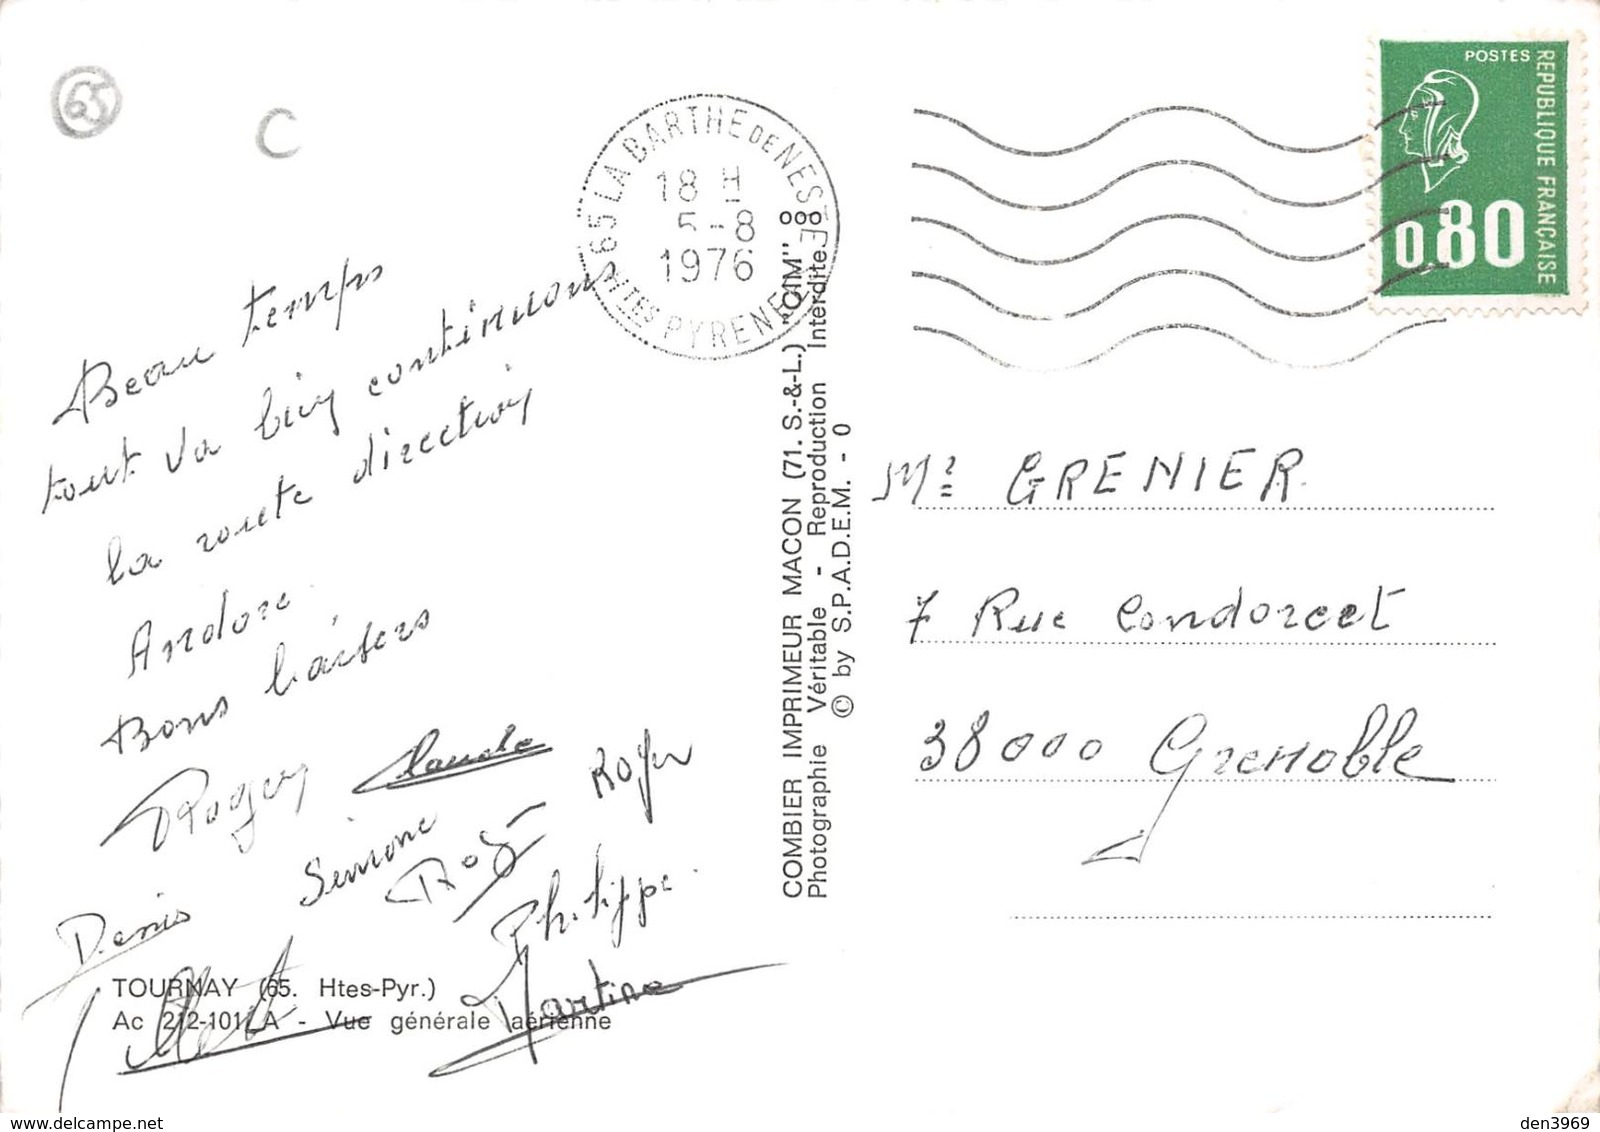 65
C
65 LA BARTHE DE NESTE
18 H
5-8
1976
HTES PYRENEES
POSTES
REPUBLIQUE FRANÇAISE
0.80
Beau temps
tout va bien continuons
la route direction
Andore
Bons baisers
Roger Claude Roger
Simone Rog
Denis Philippe
Martine
TOURNAY (65. Htes-Pyr.)
Ac 212-101 LA - Vue générale aérienne
COMBIER IMPRIMEUR MACON (71. S.-&-L.) "CIM"
Photographie Véritable - Reproduction Interdite
© by S.P.A.D.E.M. - 0
Mr GRENIER
7 Rue Condorcet
38000 Grenoble
www.delcampe.net
den3969